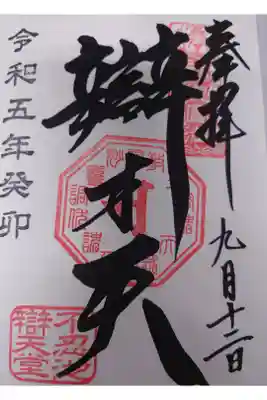 奉拝
九月十二日
辯才天
令和五年癸卯
不忍池
辯天堂